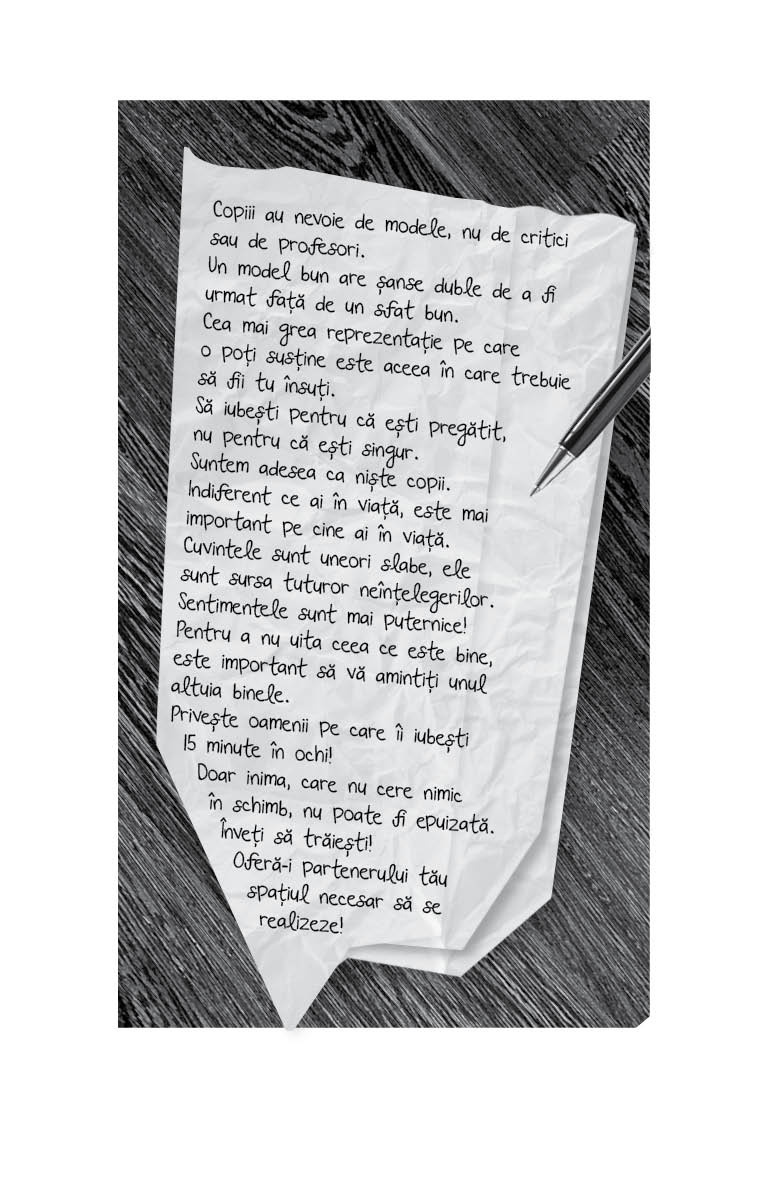 Copiii au nevoie de modele, nu de critici
sau de profesori.
Un model bun are șanse duble de a fi
urmat față de un sfat bun.
Cea mai grea reprezentație pe care
o poți susține este aceea în care trebuie
să fii tu însuți.
Să iubești pentru că ești pregătit,
nu pentru că ești singur.
Suntem adesea ca niște copii.
Indiferent ce ai în viață, este mai
important pe cine ai în viață.
Cuvintele sunt uneori slabe, ele
sunt sursa tuturor neînțelegerilor.
Sentimentele sunt mai puternice!
Pentru a nu uita ceea ce este bine,
este important să vă amintiți unul
altuia binele.
Privește oamenii pe care îi iubești
15 minute în ochi!
Doar inima, care nu cere nimic
în schimb, nu poate fi epuizată.
Înveți să trăiești!
Oferă-i partenerului tău
spațiul necesar să se
realizeze!